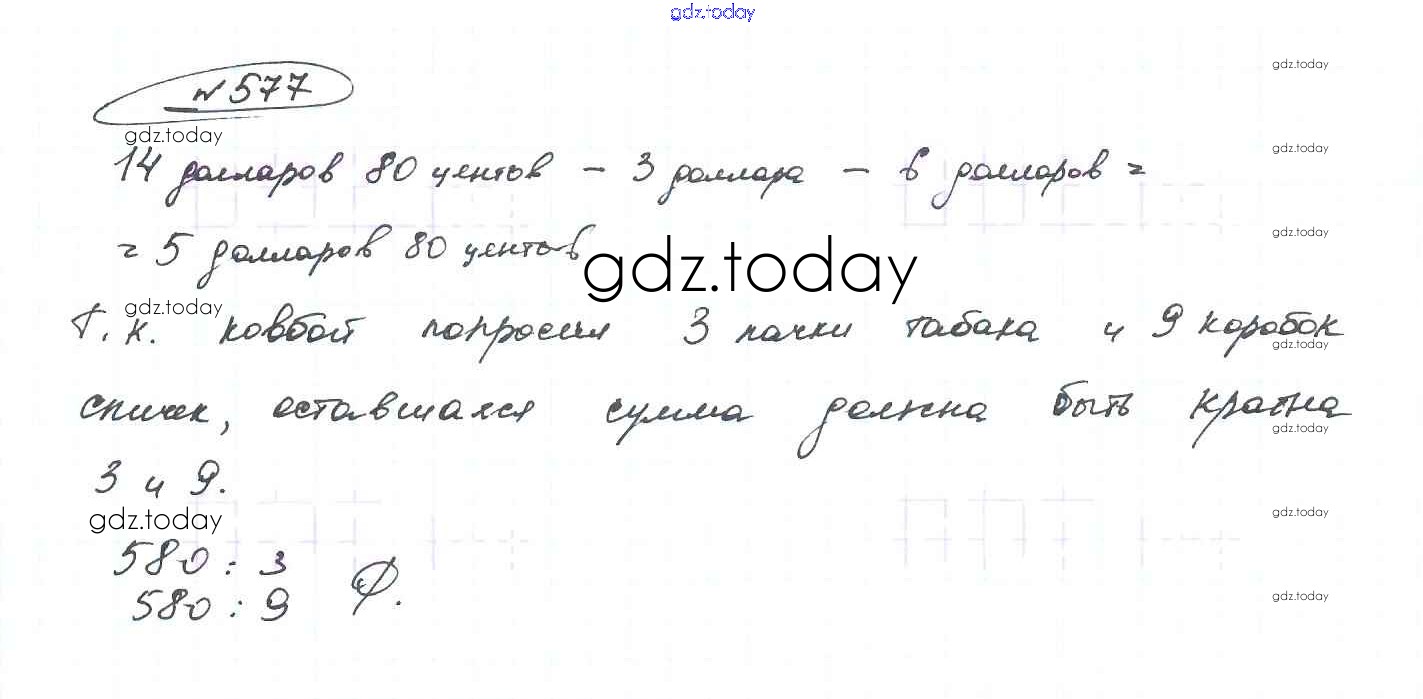 gdz.today
№577
gdz.today
gdz.today
14 долларов 80 центов - 3 доллара - 6 долларов =
gdz.today
= 5 долларов 80 центов
gdz.today
gdz.today
gdz.today
Т.к. ковбой попросил 3 пачки табака и 9 коробок
gdz.today
спичек, оставшаяся сумма должна быть кратна
gdz.today
3 и 9.
gdz.today
gdz.today
580 : 3
580 : 9
gdz.today